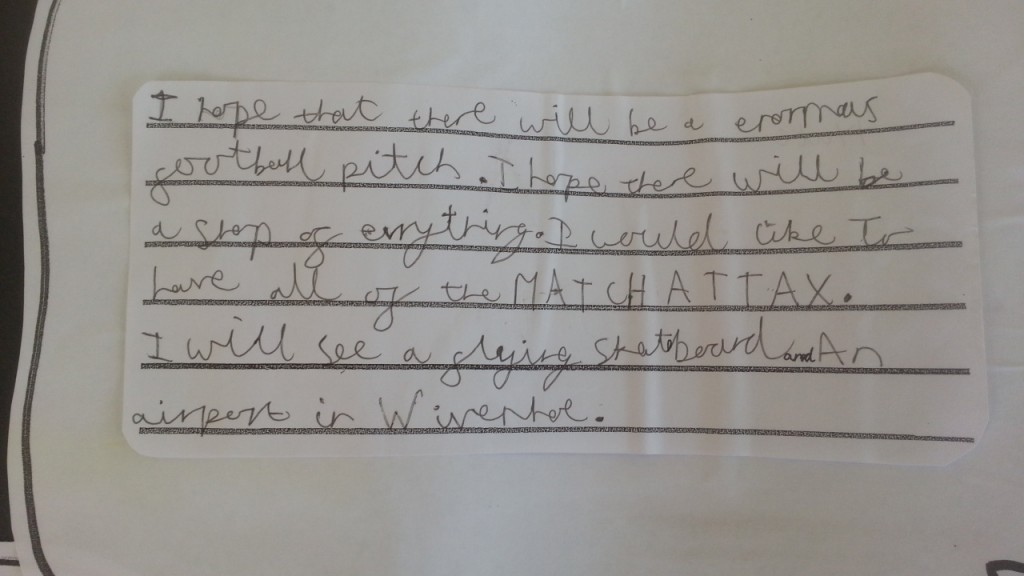 I hope that there will be a enormous
football pitch. I hope there will be
a shop of everything. I would like To
have all of the MATCH ATTAX.
I will see a flying skateboard and An
airport in Wivenhoe.